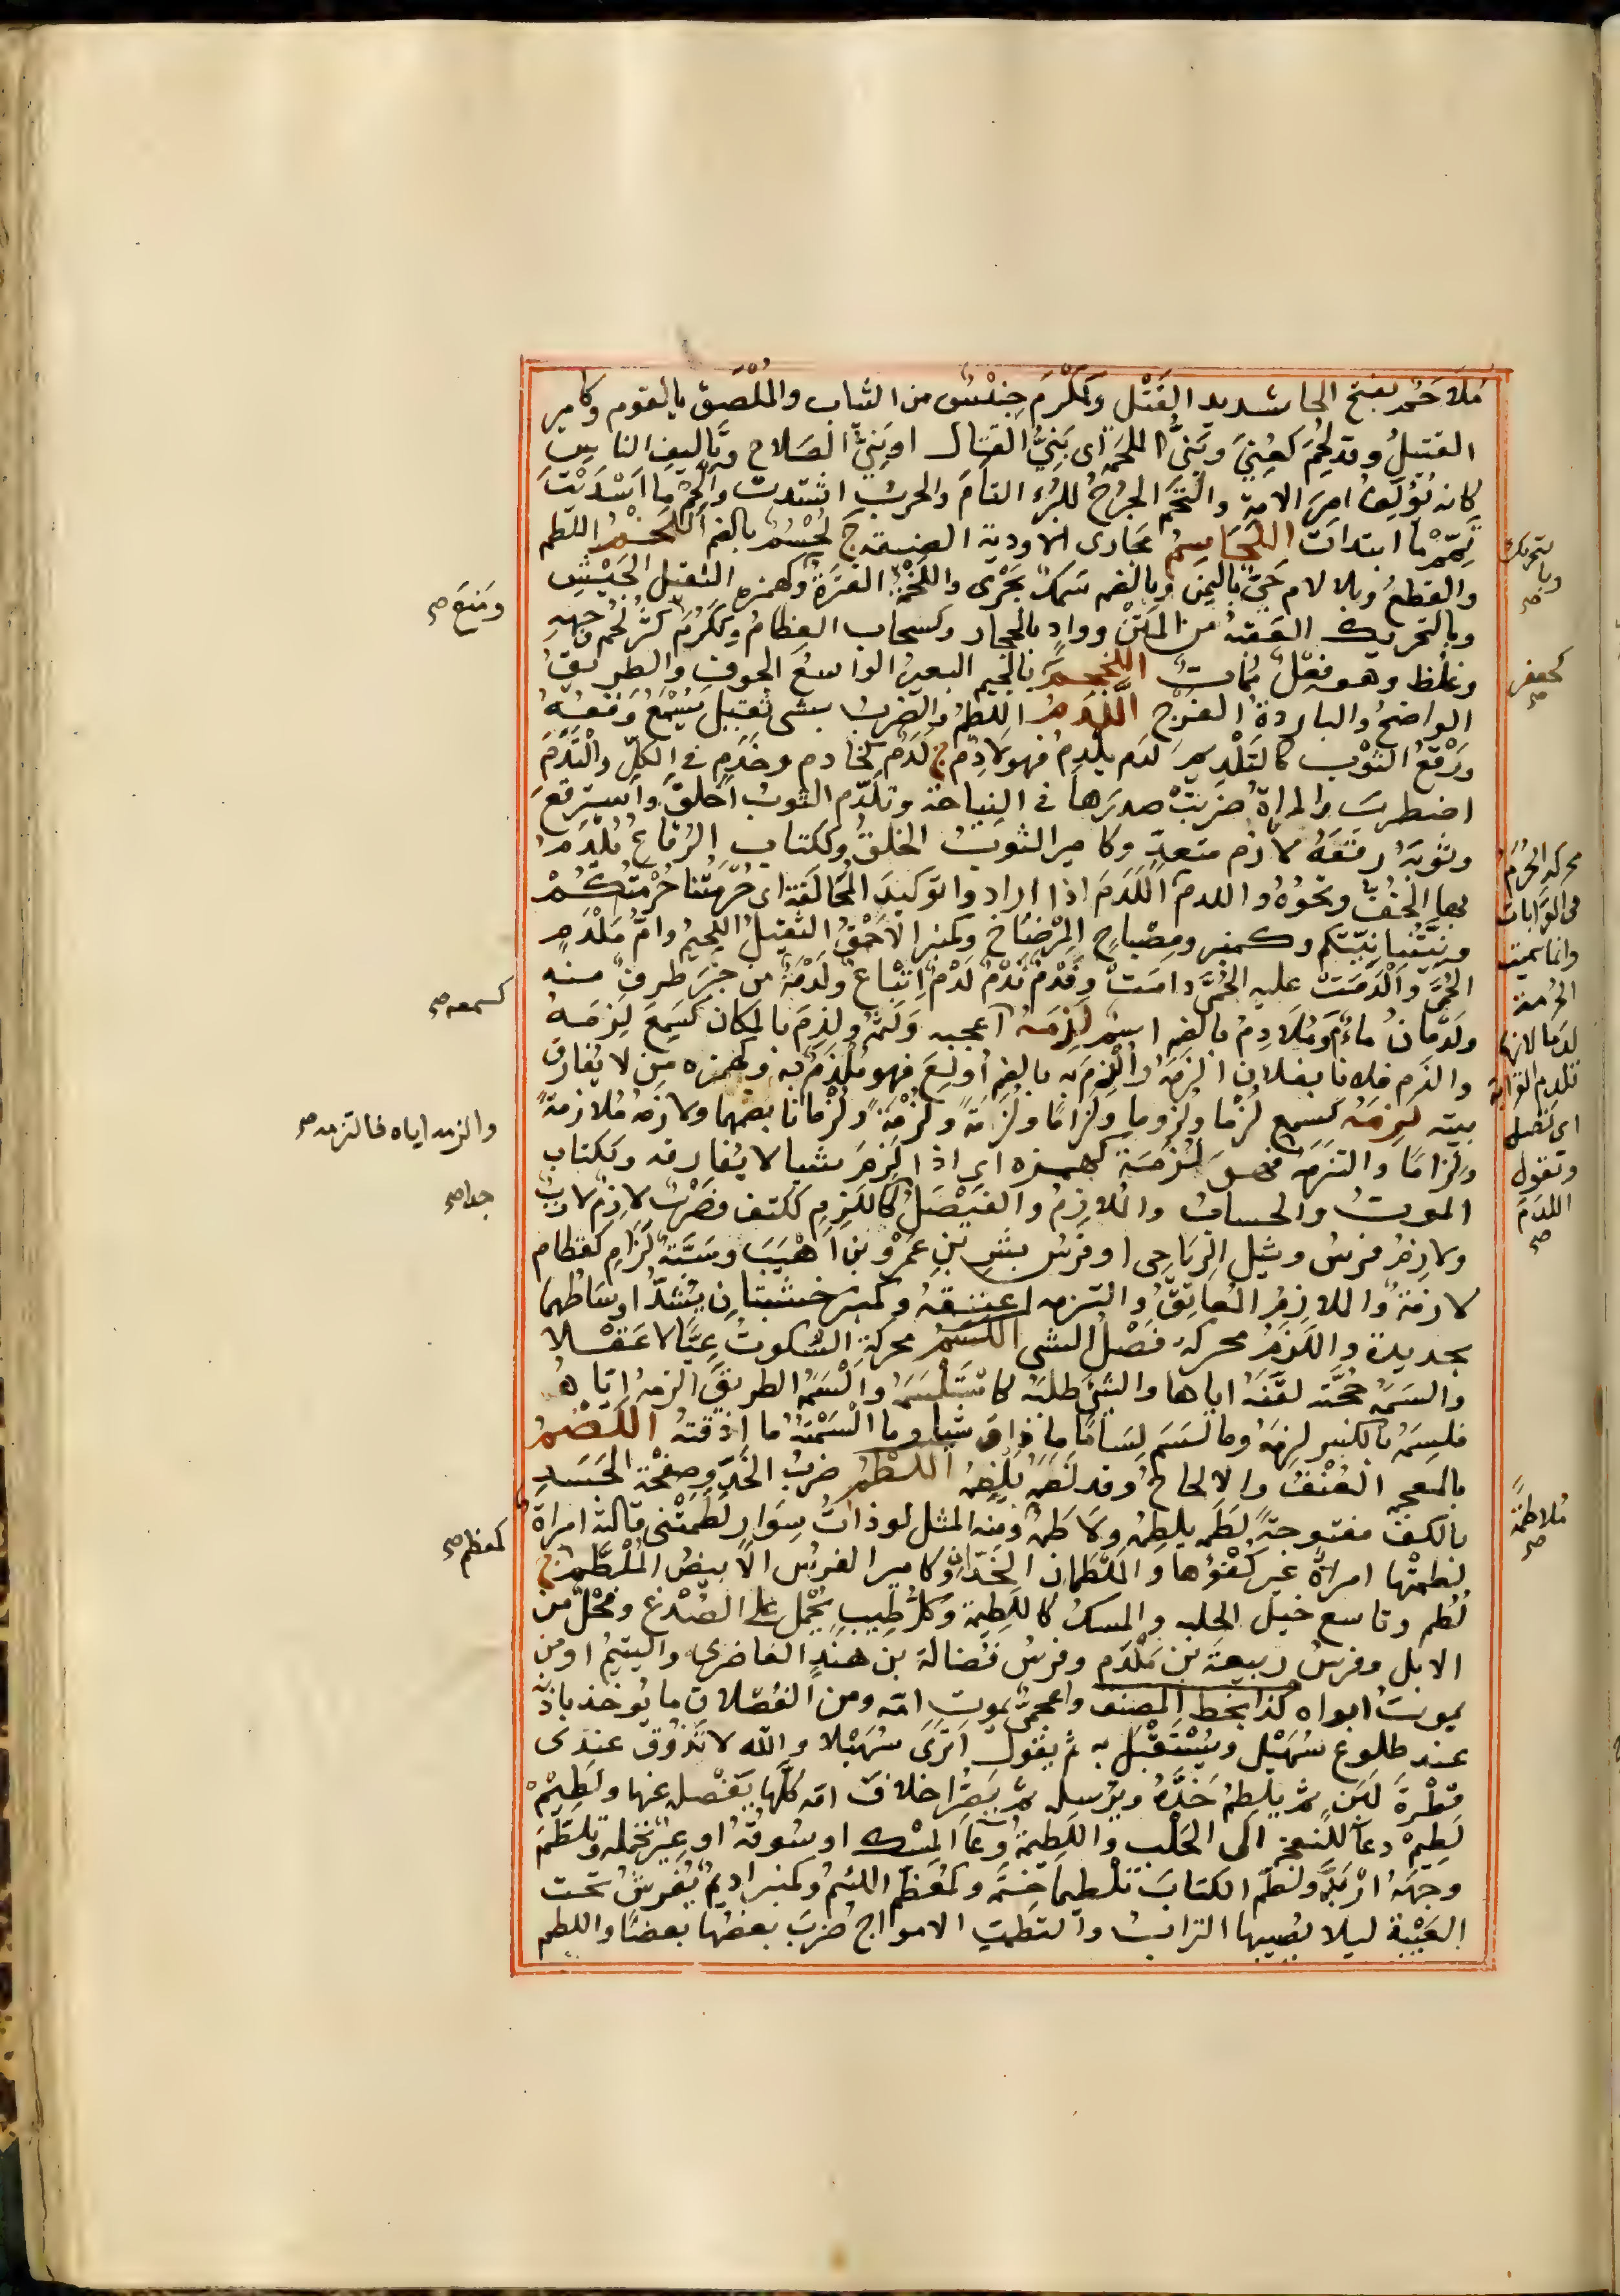 مُلَاحَمٌ بفتح الحا شديد الفَتْل وكَمُكْرَم جِنْسٌ من الثياب والمُلْصَق بالقوم وكامير
القتيلُ وقد لُحِمَ كعُنِيَ ونَبِيُّ المَلْحَمة اى نَبِيُّ القتال او نَبِيُّ الصَلاح وتأليف الناس
كانه يُؤَلِّفُ امرَ الامة والتَحَمَ الجُرْحُ للبُرْء التأمَ والحربُ اشتدت وأَلْحِمْ ما اَسْدَيْتَ
تَمِّمْ ما ابتدأت اللَحَاسِمُ مجارى الاودية الضيقة ج لُحْسُمٌ بالضم اللَخْمُ اللطم
والقطعُ وبلا لام حَىٌّ باليمن وبالضم سَمَكٌ بَحْرى واللَخْمَةُ الفَتْرَةُ وكهمزه الثقيل الجَبْسُ
وبالتحريك العَقَبَةُ من المَتْن ووادٍ بالحجاز وكسحاب العِظامُ وككَرُمَ كَثُرَ لَحْمُ وجهه
وغلظ وهو فِعْلٌ مُمات اللَخْجَمُ بالجيم البعيرُ الواسعُ الجوف والطريقُ
الواضحُ والباردةُ الفَرْج اللَّدْمُ اللطمُ والضربُ بشى ثقيل يُسْمَعُ وَقْعُهُ
ورَقْعُ الثَوْب كالتَلْدِيم لَدَم يلدِمُ فهو لَادِمٌ ج لَدَمٌ كخادم وخَدَمٍ فى الكل والْتَدَمَ
اضطرب والمراةُ ضربتْ صدرَها فى النِياحة وتلدّم الثوبُ اخلقَ واسترقعَ
وثوبَهُ رقعَهُ لازم متعدٍّ وكامير الثوبُ الخلقُ وككتاب الرِقاعُ يُلْدَمُ
بها الخُفُّ ونحوُهُ واللدم اللَدَمَ اذا ارادوا توكيدَ المُحالَفَة اى حُرْمَتُنا حُرْمَتُكُمْ
وبَيْتُنا بَيْتُكم وكمنبر ومِصْباحٍ المِرْضاخُ وكمنبر الاَحْمَقُ الثقيلُ اللحيمُ وامُّ مِلْدَمٍ
الحُمَّى وأَلْدَمَتْ عليه الحُمَّى دامت وفَدْمٌ نَدْمٌ لَدْمٌ اِتْبَاعٌ ولَدْمَةٌ من خَبَرٍ طرفٌ منه
ولَدْمَانُ ماءٌ ومُلَادِمٌ بالضم اسم لَذِمَهُ اَعجبه ولَثَمَهُ ولَذِمَ بالمكان كسَمِعَ لَزِمَهُ
والذم فلانا بفلان الزمه وأُلْذِمَ به بالضم أولِعَ فهو مُلْذَمٌ به وكهمزه مَن لا يُفارق
بيته لَزِمَه كسمع لَزْمًا ولُزوما ولِزامًا ولِزامةً ولُزْمَةً ولُزْمانا بضمهما ولازمهُ مُلازمةً
ولِزامًا والتزمهُ فهو لُزَمَة كهمزه اى اذا لَزِمَ شيا لا يُفارقه وككتاب
الموتُ والحسابُ والمُلازِمُ والفَيْصَلُ كاللَّزِمِ ككتف وضَرْبَةُ لازِمٍ لازِبٍ
ولازِمُ فرسُ وثيل الرِيَاحِى او فرس بشر بن عَمْرِو بن اُهَيْب وسَبَّةٌ لَزَامِ كقطام
لازمةٌ والملازِمُ المُعانِقُ والتزمه اعتنقه وكمنبر خشبتان يُشَدُّ اوساطُهما
بحديدة واللَزَمُ محركة فَصْلُ الشى اللَسَمُ محركة السُكوتُ عِيًّا لا عَقْلا
والسَمَهُ حُجَّته لقّنَه اياها والشىَ طلبَه كاسْتَلْسَمَهُ والْسَمَهُ الطريقَ الزمهُ ايّاه
فلسِمَهُ بالكسر لزِمَهُ وما لسَمَ لِسَامًا ما ذاق شيا وما اَلْسَمْتُهُ ما اَذقتهُ اللَضْمُ
بالمعجمة العُنْفُ والالحاحُ وقد لَضَمَهُ يَلْضِمُهُ اللَطْمُ ضربُ الخَدّ وصفْحَة الجَسَدِ
بالكف مفتوحةً لَطَمَه يلطِمُهُ ولاطمَهُ ومنه المثل لو ذاتُ سِوَارٍ لَطَمَتْنى قالته امراةٌ
لطمتها امراةٌ غير كُفْؤٍ لها والمَلْطَمان الخَدّانِ وكامير الفرسُ الابيضُ المَلْطَمِ ج
لُطُم وتاسع خيل الحلبه والمسكُ كاللَطِيمة وكلُّ طِيبٍ يُحْمَل على الصُدْغ وفَحْلٌ من
الابل وفرسُ ربيعةَ بن مُكَدَّم وفرسُ فَضالة بن هندٍ الغاضرى واليتيمُ اومن
يموتُ ابواه كذا بخط المصنف واعجمىٌ يموت امه ومن الفُصْلان ما يُوخذ باذُنه
عند طلوع سُهَيْل ويُسْتَقْبَل به ثم يقول اَتَرَى سُهَيْلا والله لا تَذوق عندى
قطْرةَ لَبَنٍ ثم يلطِمُ خَدَّهُ ويرسله ثم يَصُرُّ اخلافَ امّه كُلَّها يَفْصله عنها ولَطِيمْ
لَطِيمْ دعاءٌ للنعجة الى الحَلْب واللَطِيمةُ وعاءُ المِسْك او سُوقُهُ او عِيْرٌ تحمله وتلطّمَ
وجهُهُ ارْبَدَّ ولطّم الكتابَ تلطيماً خَتَمَه وكمُعَظّم اللئيمُ وكمنبر اديمٌ يُفرشُ تحت
العَيْبَة ليلا يُصيبها الترابُ والتطمت الامواج ضربَ بعضُها بعضًا واللطم
وبالتحريك
صح
ومَنَع صح
كجعفر
صح
محركه الحُرَمُ
فى القَرَابات
وانما سميت
الحُرْمة
لَدَما لانها
تلدم القرابة
اى تُصْلِح
وتقول
اللدَمَ
صح
كسمعه صح
والزمه اياه فالتزمه صح
جدا صح
مُلاطمةً
صح
كمعظم صح